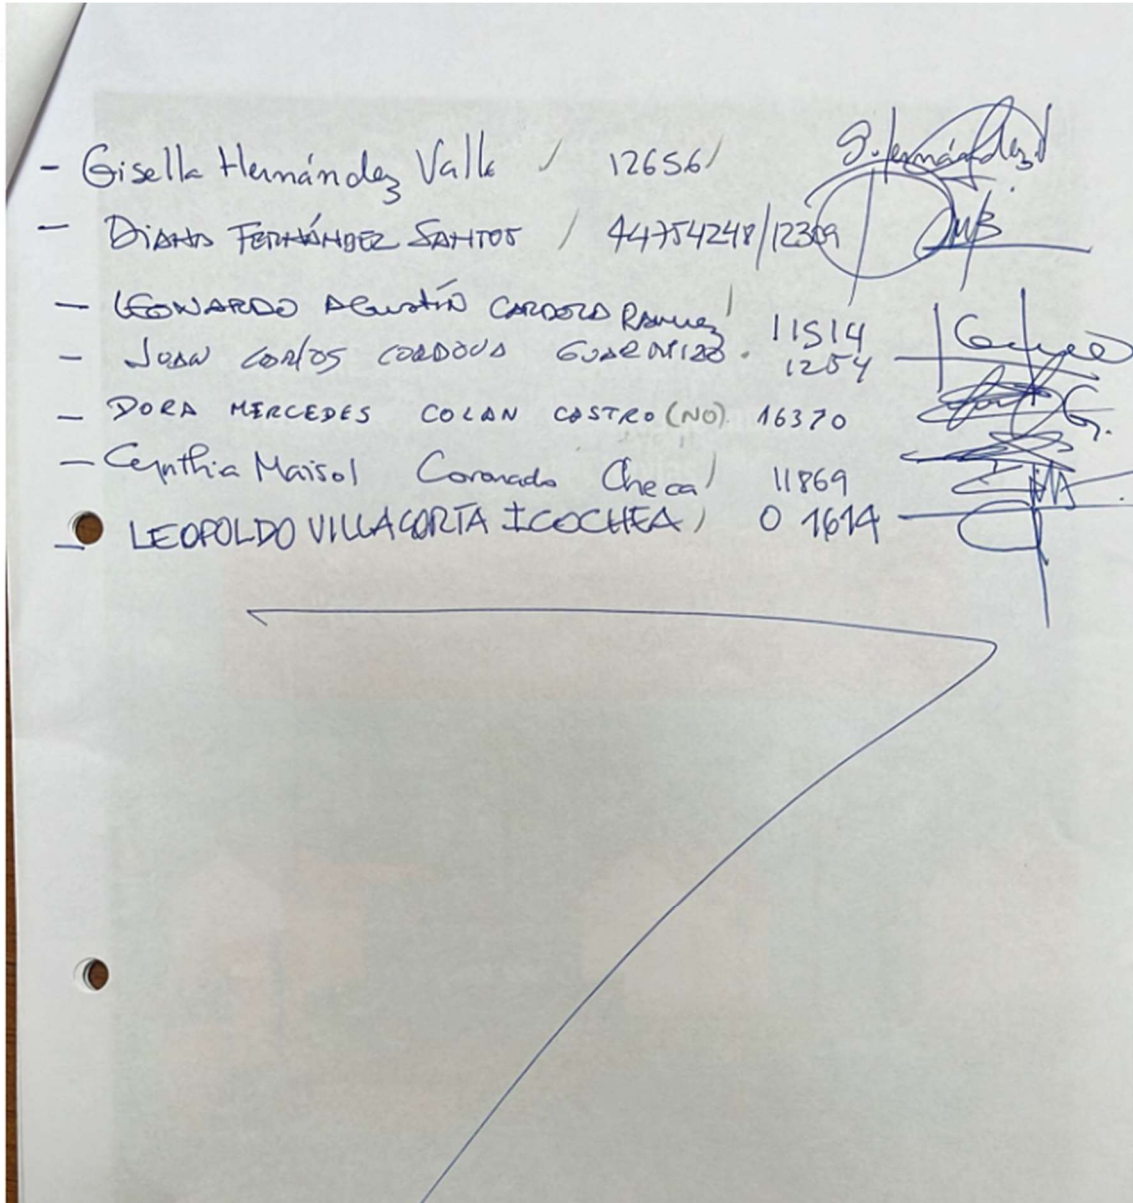 - Gisella Hernández Valle / 12656/ G. Hernández V.
- DIANA FERNÁNDEZ SANTOS / 44754248/12309
- LEONARDO AGUSTÍN CARDOZA RAMIREZ / 11514
- JUAN CARLOS CORDOVA GUARNIZO . 1254
- DORA MERCEDES COLAN CASTRO (NO) 16370
- Cynthia Maisol Coronado Checa / 11869
- LEOPOLDO VILLACORTA ICOCHEA / 0 1614